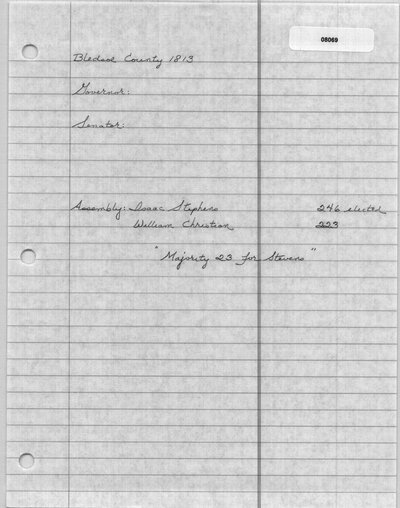 08069
Bledsoe County 1813
Governor:
Senator:
Assembly: Isaac Stephens 246 elected
William Christian 223
"Majority 23 for Stevens"